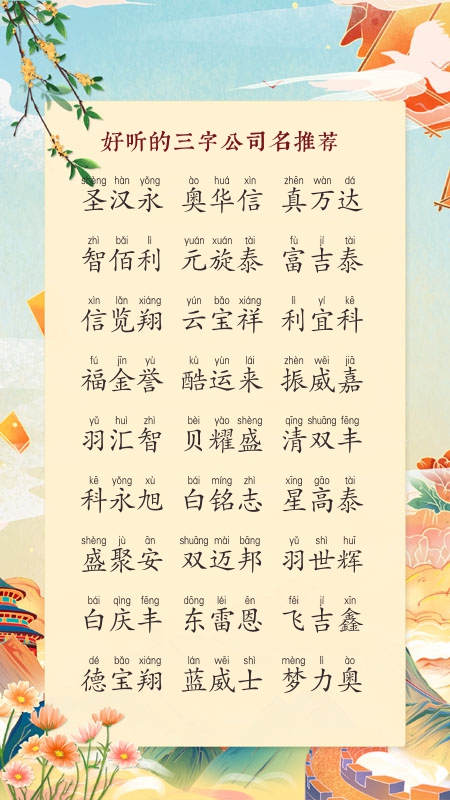 好听的三字公司名推荐
shèng hàn yǒng ào huá xìn zhēn wàn dá
圣汉永 奥华信 真万达
zhì bǎi lì yuán xuán tài fù jí tài
智佰利 元旋泰 富吉泰
xìn lǎn xiáng yún bǎo xiáng lì yí kē
信览翔 云宝祥 利宜科
fú jīn yù kù yùn lái zhèn wēi jiā
福金誉 酷运来 振威嘉
yǔ huì zhì bèi yào shèng qīng shuāng fēng
羽汇智 贝耀盛 清双丰
kē yǒng xù bái míng zhì xīng gāo tài
科永旭 白铭志 星高泰
shèng jù ān shuāng mài bāng yǔ shì huī
盛聚安 双迈邦 羽世辉
bái qìng fēng dōng léi ēn fēi jí xīn
白庆丰 东雷恩 飞吉鑫
dé bǎo xiáng lán wēi shì mèng lì ào
德宝翔 蓝威士 梦力奥